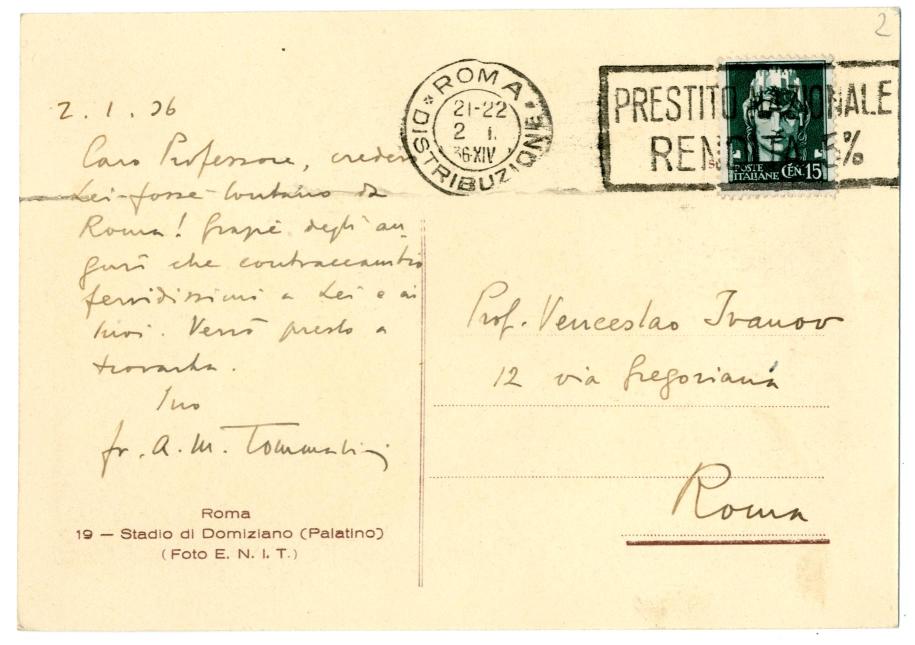 2
ROMA
21-22
2 I.
36·XIV
* DISTRIBUZIONE *
PRESTITO NAZIONALE
RENDITA 5%
POSTE
ITALIANE CEN. 15
2. 1. 36
Caro Professore, credevo
Lei fosse lontano da
Roma! Grazie degli au-
guri che contraccambio
fervidissimi a Lei e ai
Suoi. Verrò presto a
trovarla.
Suo
fr. A. M. Tommasini
Roma
19 — Stadio di Domiziano (Palatino)
(Foto E. N. I. T.)
Prof. Venceslao Ivanov
12 via Gregoriana
Roma